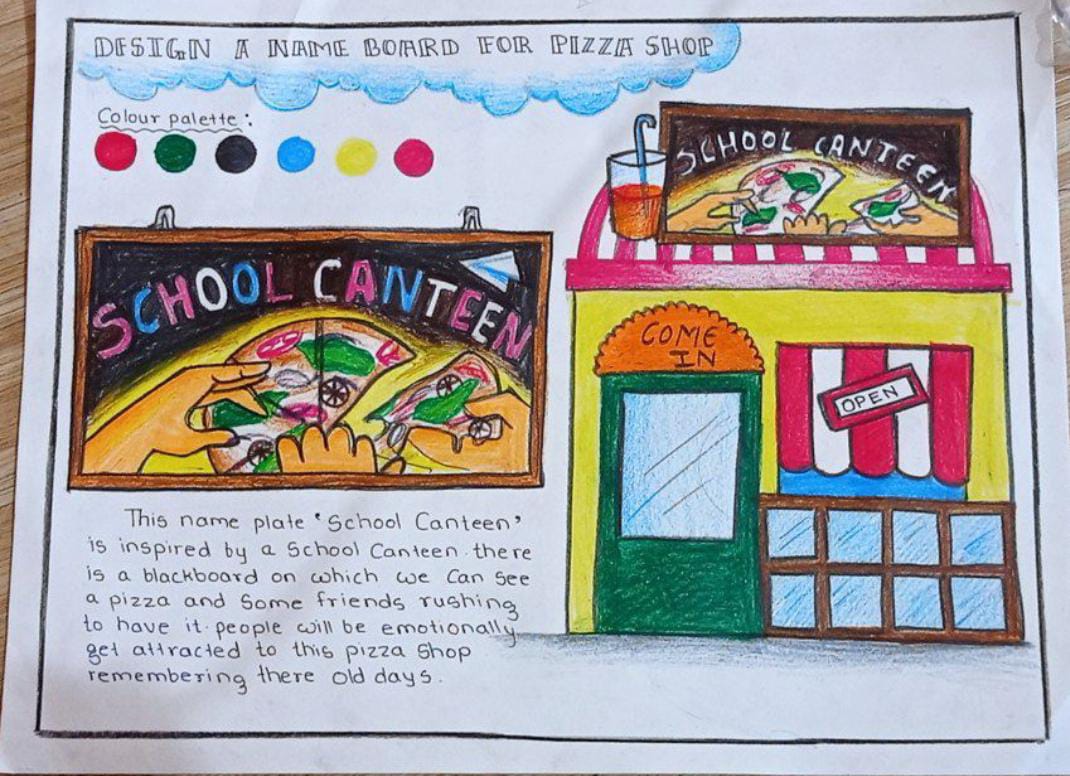 DESIGN A NAME BOARD FOR PIZZA SHOP
Colour palette :
SCHOOL CANTEEN
SCHOOL CANTEEN
COME
IN
OPEN
This name plate 'School Canteen'
is inspired by a School Canteen. there
is a blackboard on which we Can See
a pizza and Some friends rushing
to have it. people will be emotionally
get attracted to this pizza Shop
remembering there old days.